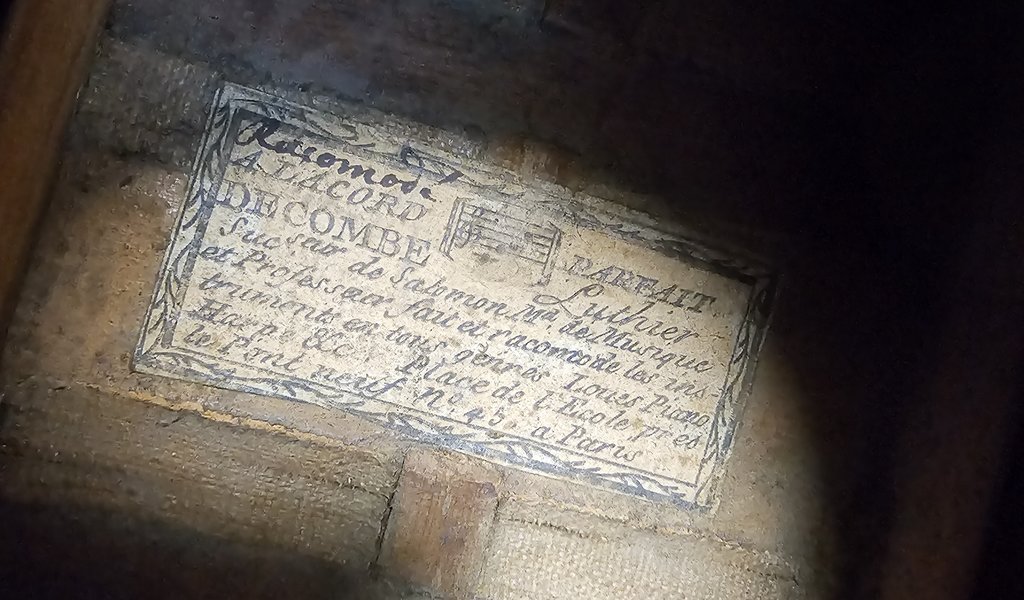 Racomodé
A L'ACORD PARFAIT
DECOMBE Luthier
Suc.sair de Salomon M.d de Musique
et Professeur fait et racomode les ins
truments en tous genres Loues Piano
Harpe &c. Place de l'Ecole près
le Pont neuf n.º 45. a Paris